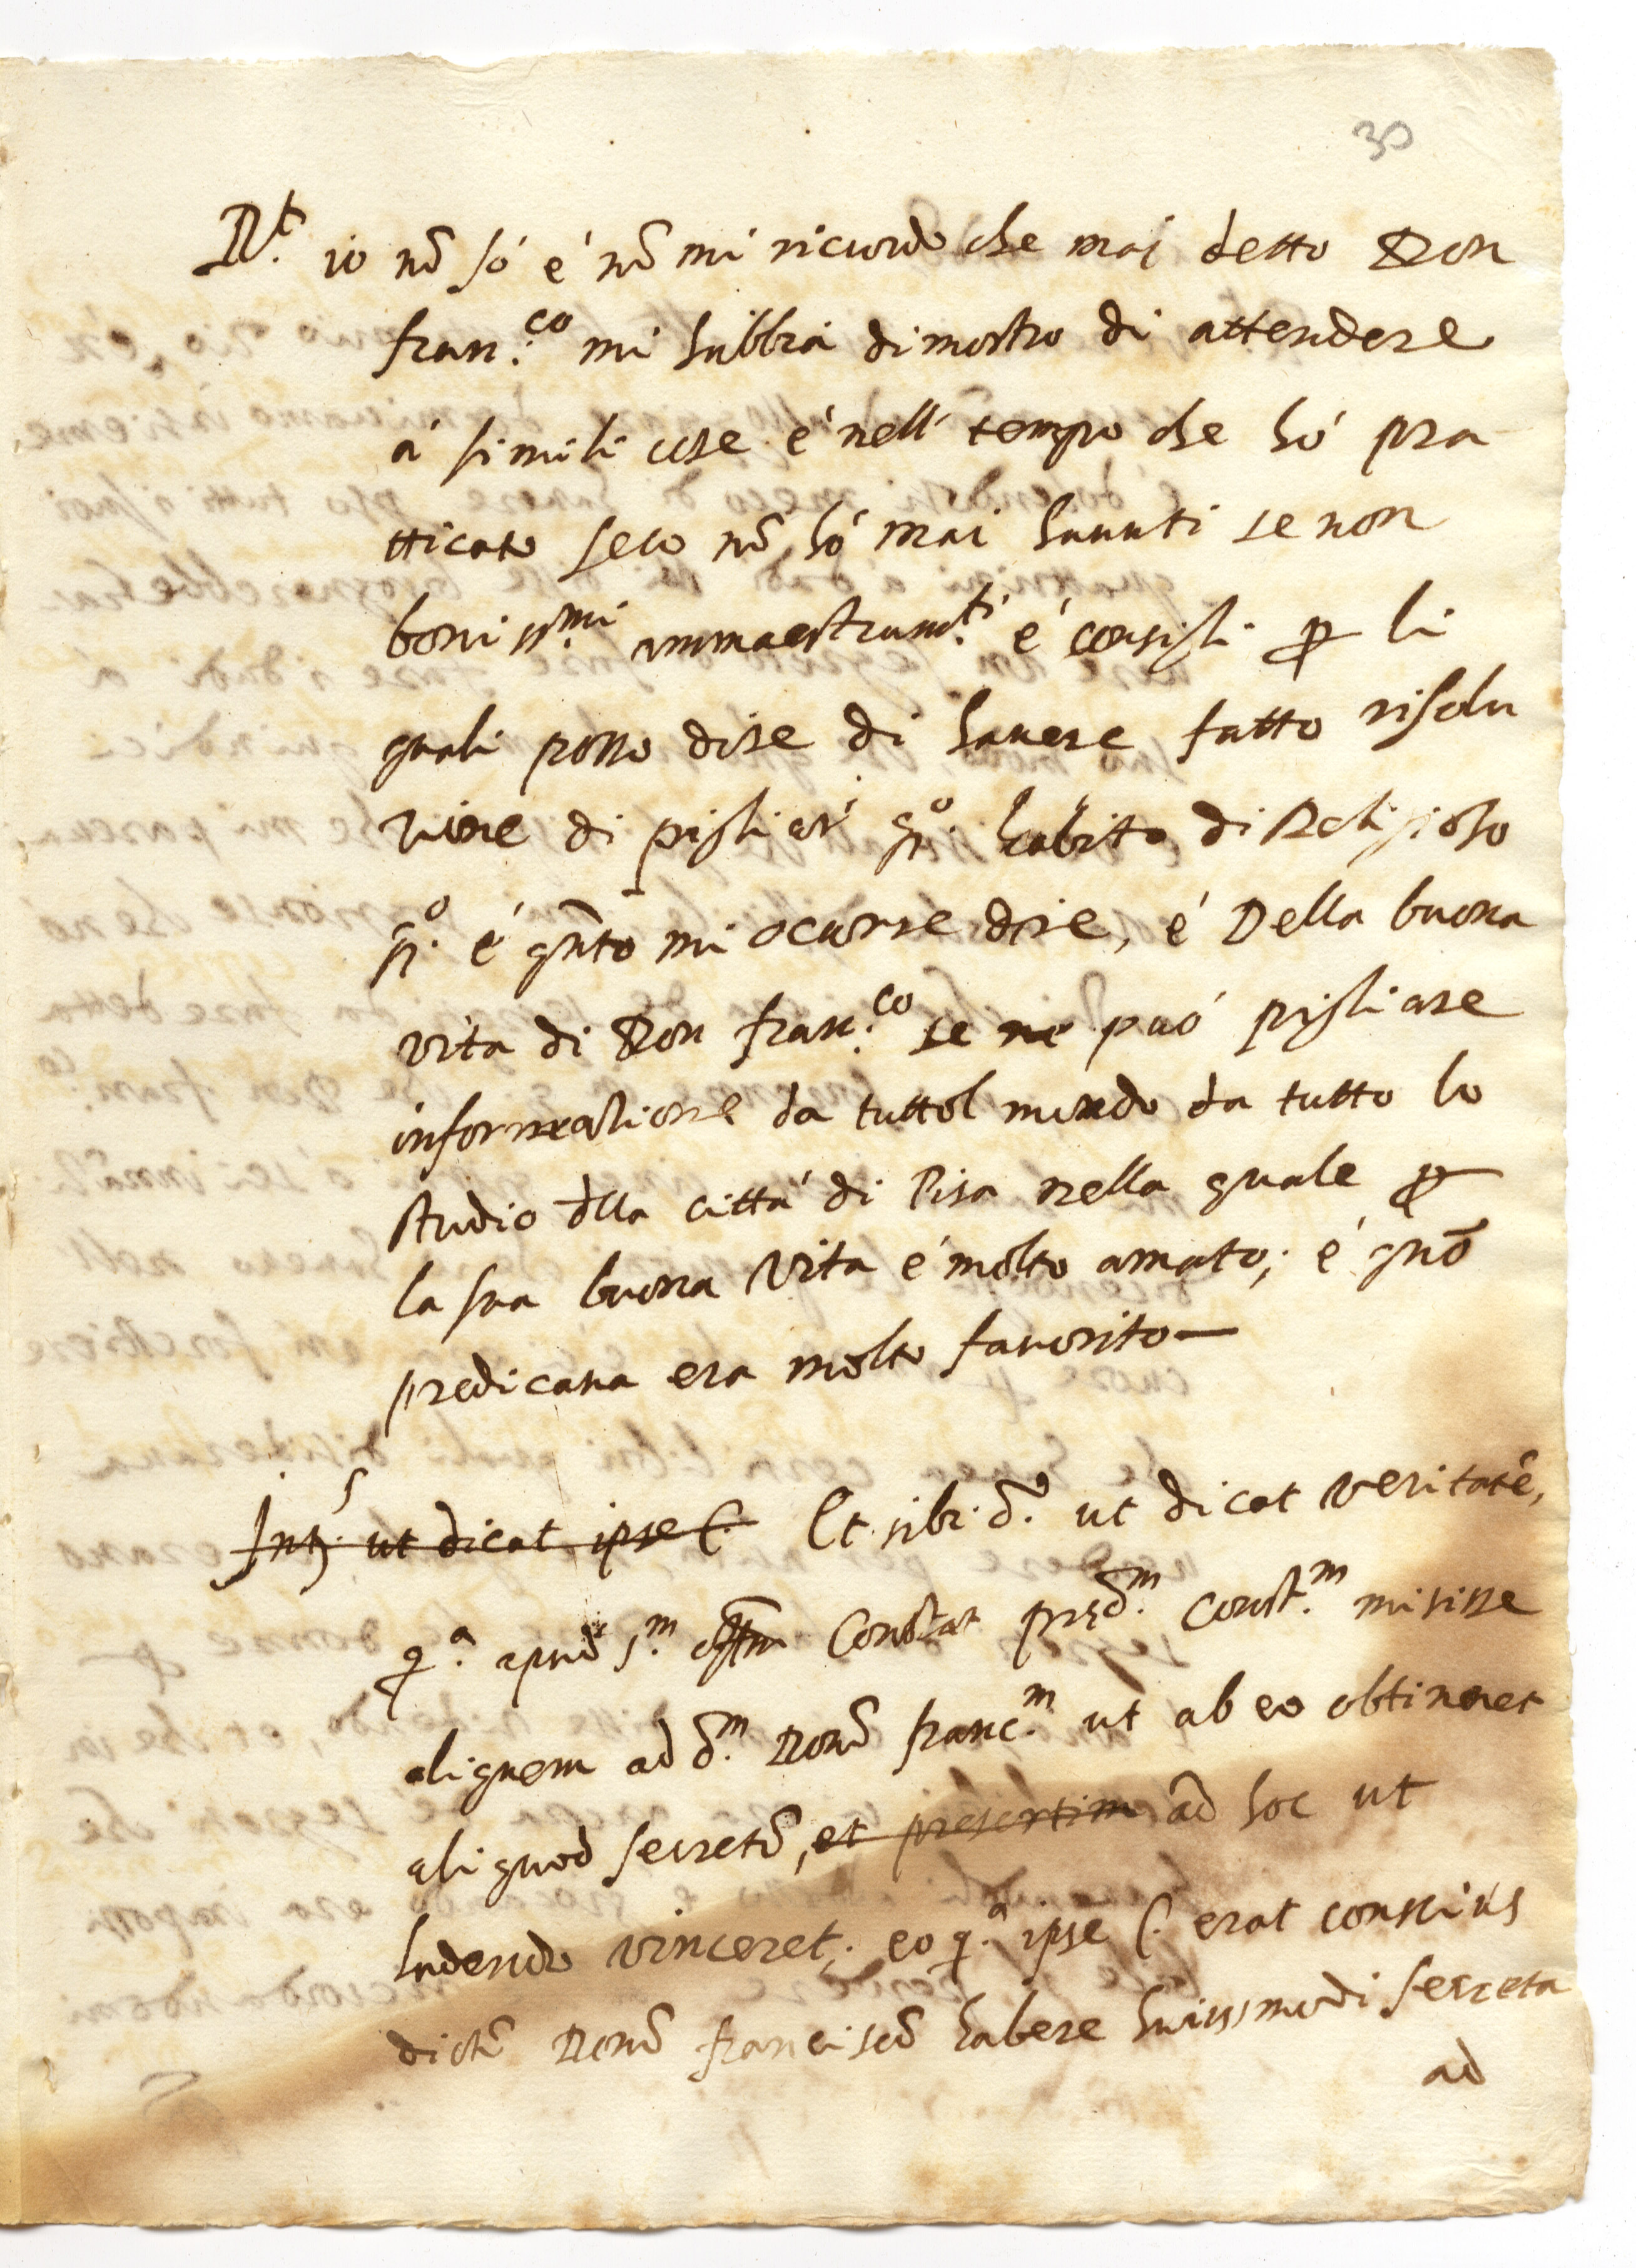 30
R.t io nõ só é nõ mi ricordo che mai detto Don
fran.co mi habbia dimostro di attendere
á simili cose é nell' tempo che hó pra
tticato seco nõ hó mai hauuti se non
boniss.mi ammaestram.ti é consigli ꝑ li
quali posso dire di hauere fatto risolu
tione di pigliar' q.o habito di Religioso
q.o é qñto mi ocurre dire, é Della buona
vita di Don fran.co se ne puó pigliare
informatione da tuttol mondo da tutto lo
studio dlla cittá di Pisa nella quale ꝑ
la sua buona Vita é molto amato; é qnõ
predicaua era molto fauorito—
Int.s ut dicat ipse C. Et sibi d.o ut dicat veritatẽ,
q.a apud S.m Constat pred.m Const.m misisse
aliquem ad d.m Donũ franc.m ut ab eo obtineret
aliquod secretũ, et presertim ad hoc ut
ludendo vinceret; eo q.a ipse C. erat conscius
dictũ Donũ franciscũ habere huiusmodi secreta
ad